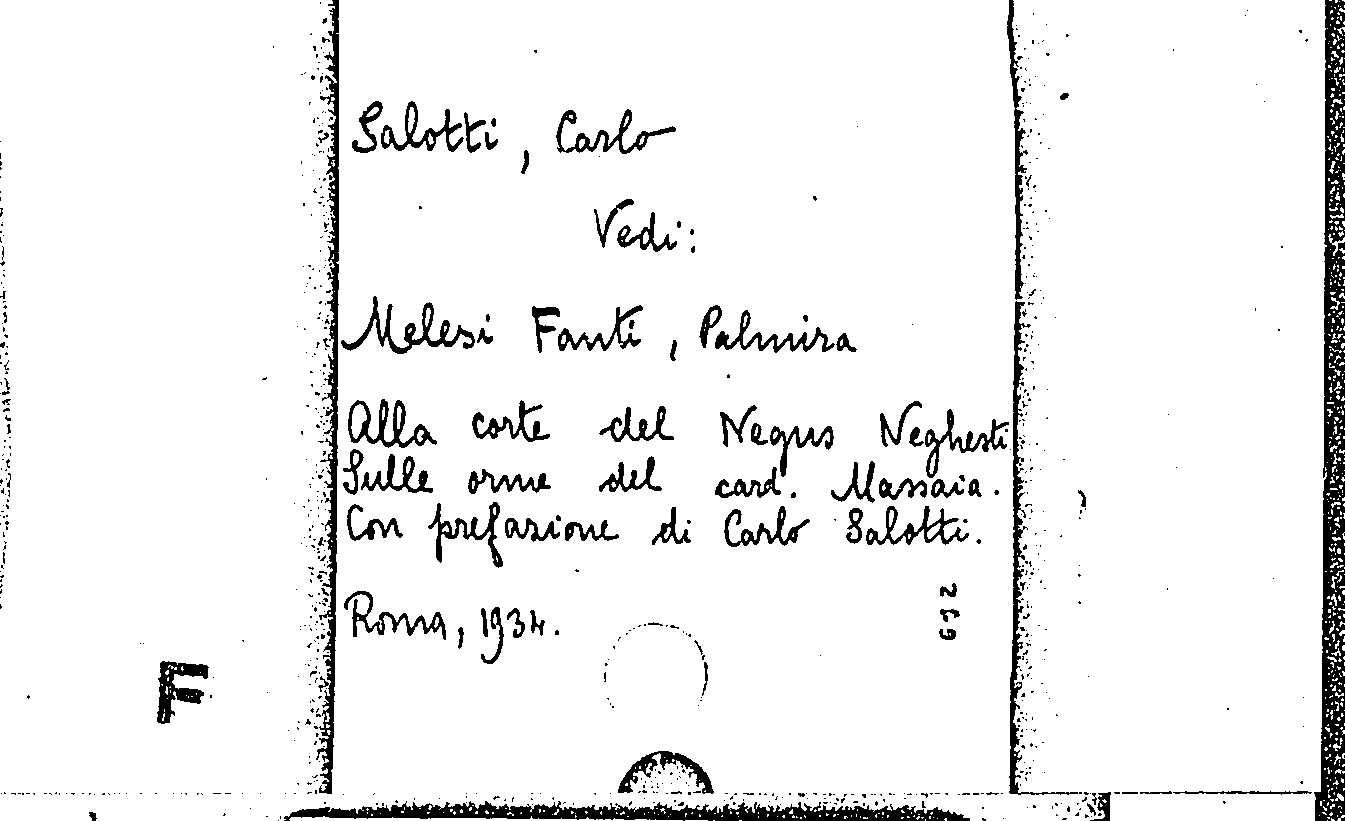 Salotti, Carlo
Vedi:
Melesi Fanti, Palmira
Alla corte del Negus Neghesti
Sulle orme del card. Massaia.
Con prefazione di Carlo Salotti.
Roma, 1934.
F